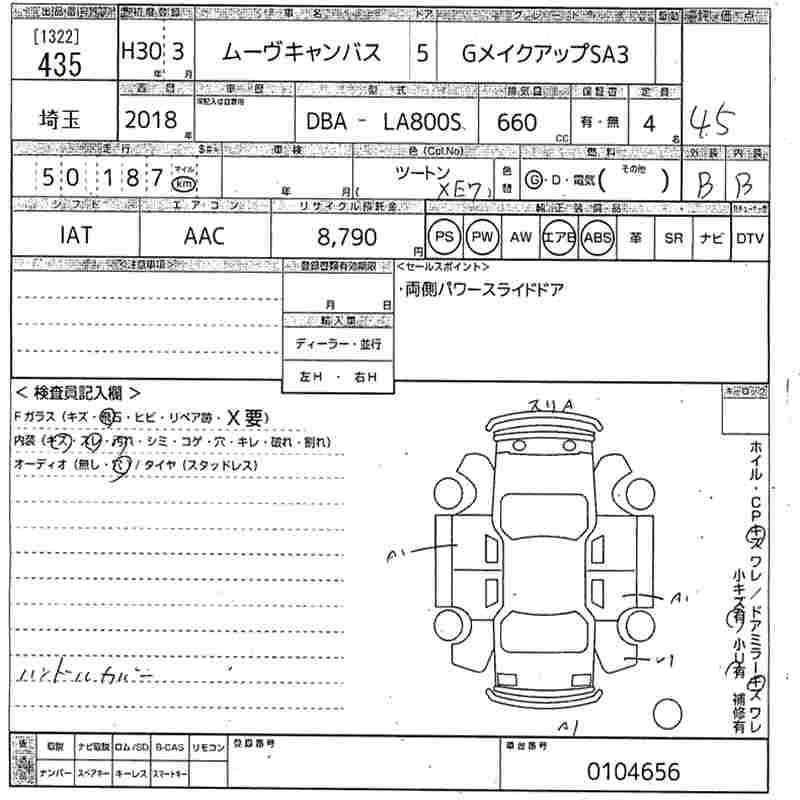 出品番号 初度登録 車名 ドア グレード 車歴 評価点
[1322]
435 H30 3 ムーヴキャンバス 5 GメイクアップSA3
年 月
西暦 車歴 型式 排気量 保証書 定員
埼玉 2018 年 DBA - LA800S 660 cc 有・無 4 名 4.5
走行 車検 色(Col.No) 燃料 外装 内装
50,187 マイル km 年 月 ツートン ( XE7 ) 色替 G・D・電気 ( その他 ) B B
シフト エアコン リサイクル預託金 純正装備品
IAT AAC 8,790 円 PS PW AW エアB ABS 革 SR ナビ DTV
<注意事項> 登録書類有効期限 <セールスポイント>
月 日 ・両側パワースライドドア
輸入車
ディーラー・並行
左H ・ 右H
<検査員記入欄>
Fガラス(キズ・飛石・ヒビ・リペア跡・X要)
内装(キズ・スレ・汚れ・シミ・コゲ・穴・キレ・破れ・割れ)
オーディオ(無し・穴)/タイヤ(スタッドレス)
スリA
A1
A1
A1
ホイル・CPキズ ワレ/ドアミラーキズ ワレ
小キズ有/小U有 補修有
ハンドルカバー
取説 ナビ取説 ロム/SD B-CAS リモコン 登録番号 車台番号
ナンバー スペアキー キーレス スマートキー 0104656